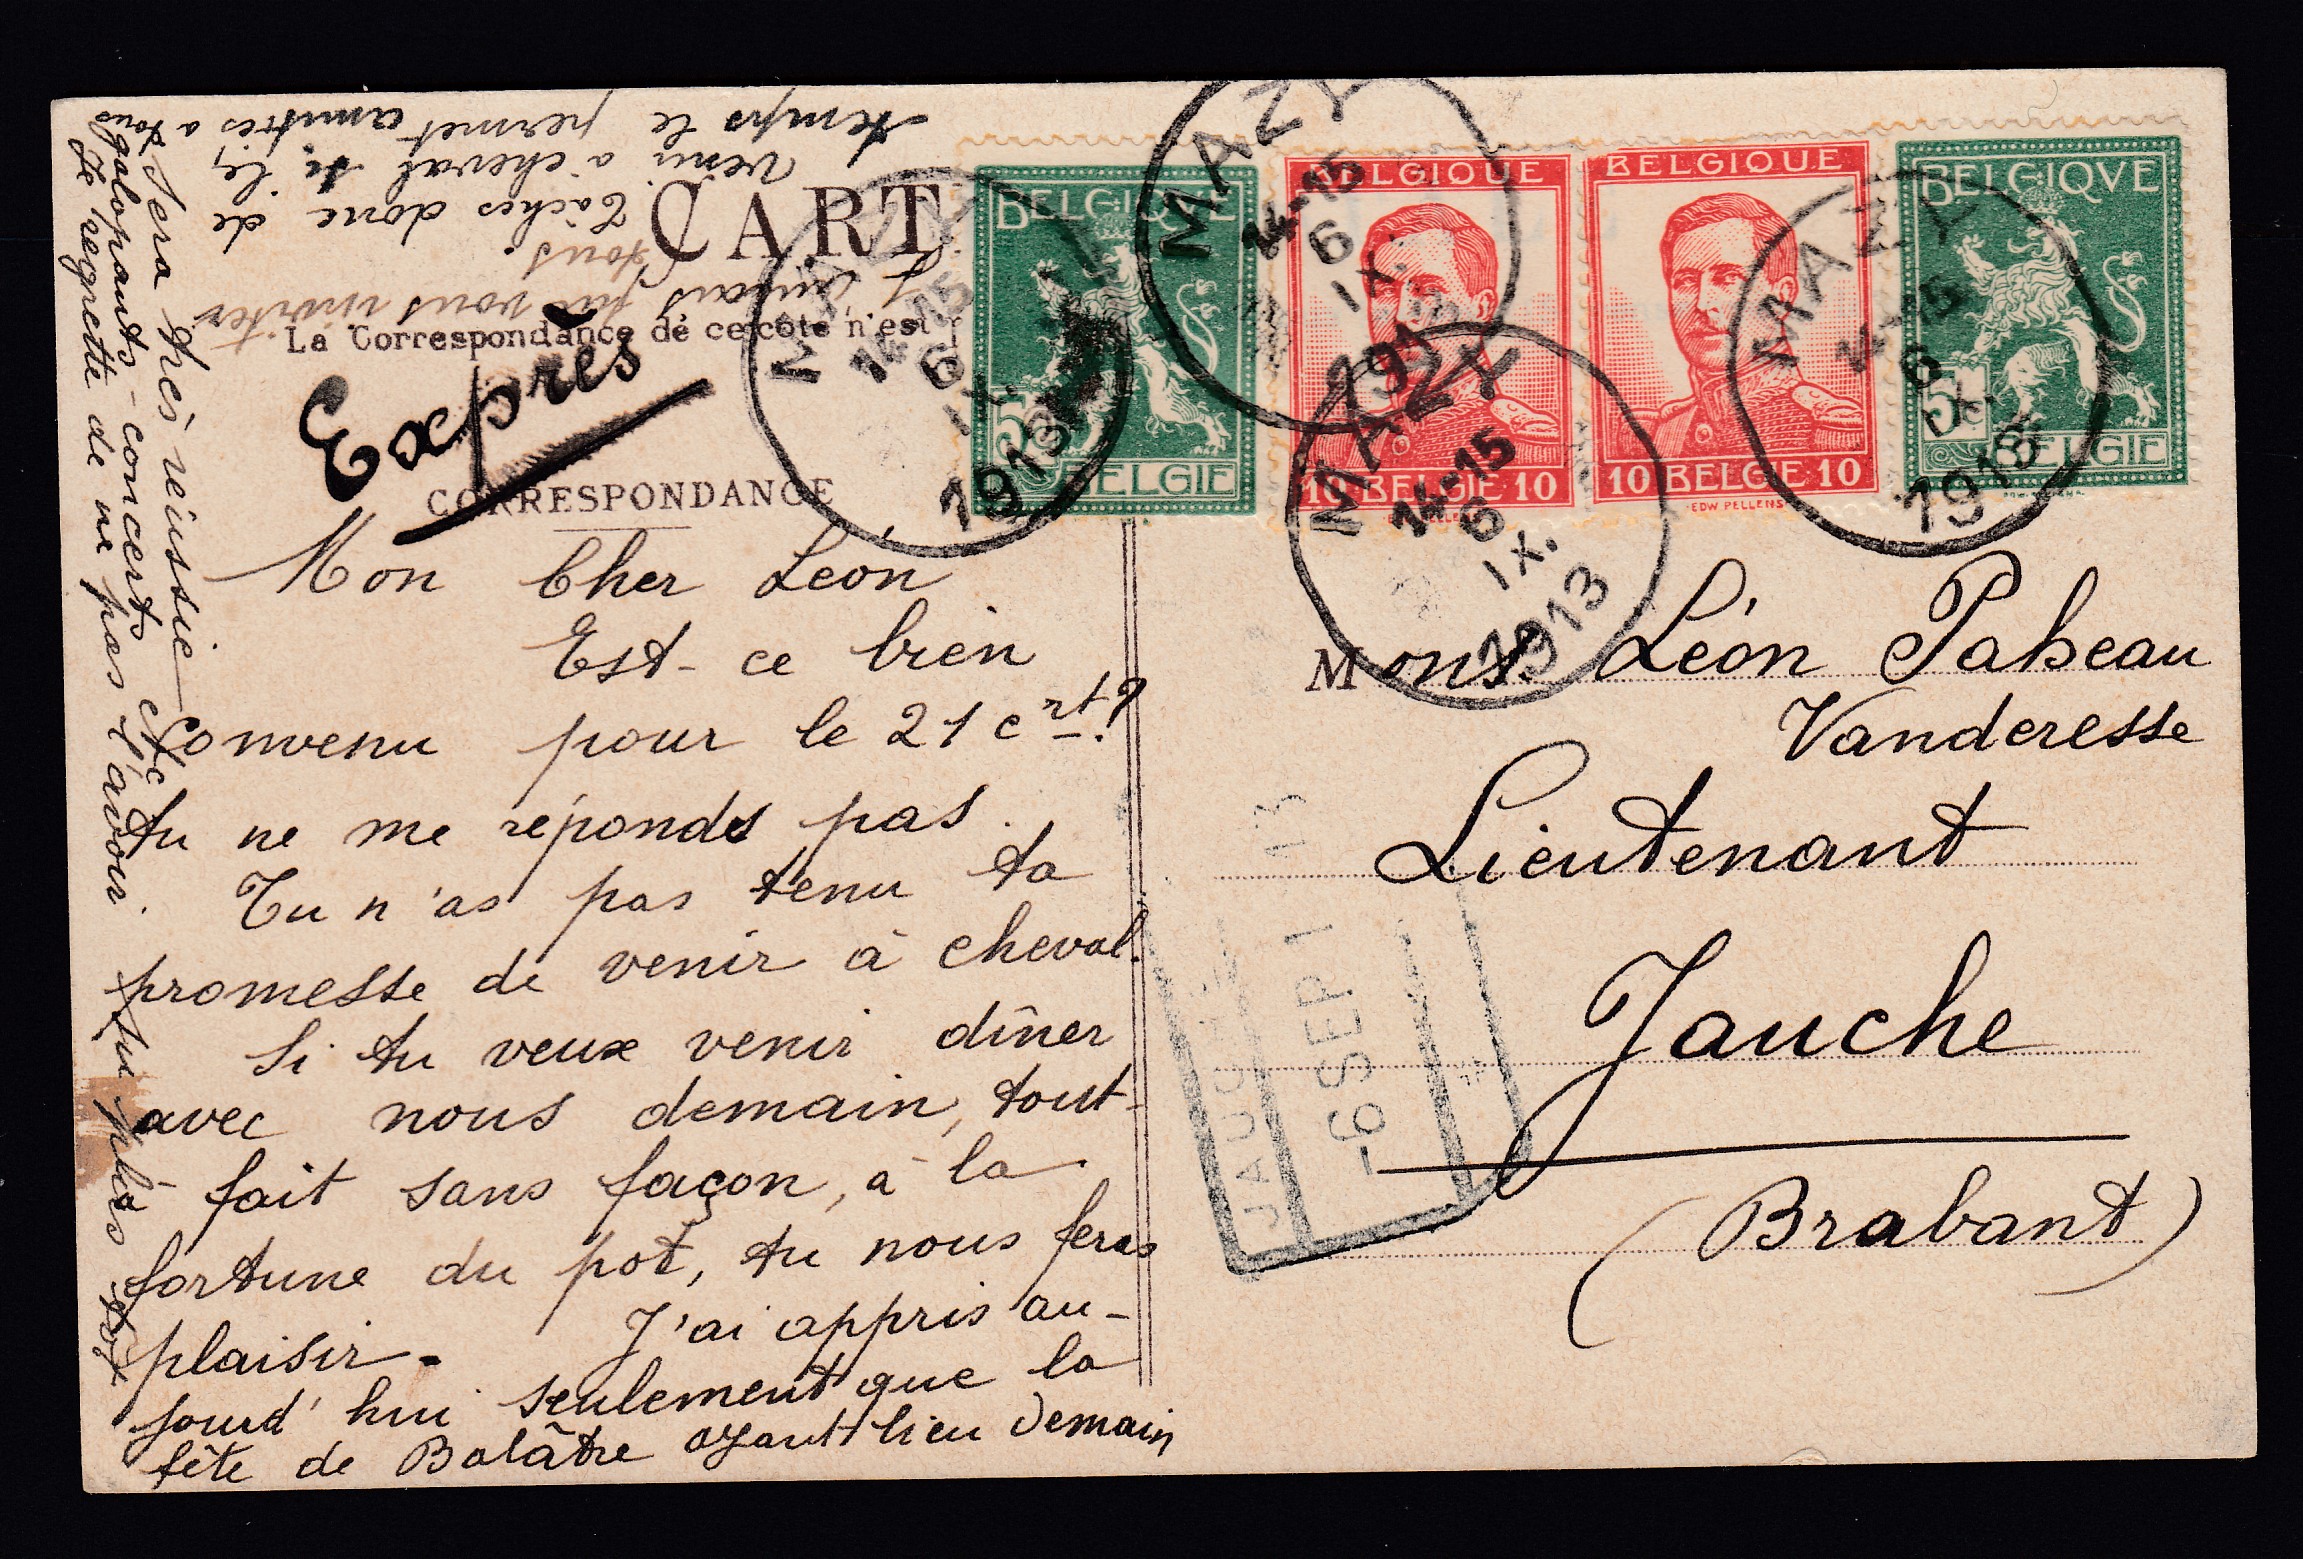 CART
La Correspondance de ce côté n'est
Exprès
CORRESPONDANCE
Mon Cher Léon
Est-ce bien
convenu pour le 21 crt?
tu ne me réponds pas.
Tu n'as pas tenu ta
promesse de venir à cheval.
Si tu veux venir dîner
avec nous demain, tout-
à fait sans façon, à la
fortune du pot, tu nous feras
plaisir. J'ai appris au-
jourd'hui seulement que la
fête de Balâtre ayant lieu demain
sera très réussie
galopants - concert &c
Je regrette de ne pas l'avoir
su plus tôt
j'aurais pu vous inviter
tous.
Tâches donc de
venir à cheval si le
temps le permet amitiés à tous
BELGIQVE
5c
BELGIE
BELGIQUE
10 BELGIE 10
BELGIQUE
10 BELGIE 10
EDW PELLENS
BELGIQVE
5c
BELGIE
MAZY
14-15
6
IX.
1913
MAZY
14-15
6
IX.
1913
MAZY
14-15
6
IX.
1913
MAZY
14-15
6
IX.
1913
Mons. Léon Pabeau
Vanderesse
Lieutenant
Jauche
(Brabant)
JAUCHE
-6 SEPT
13